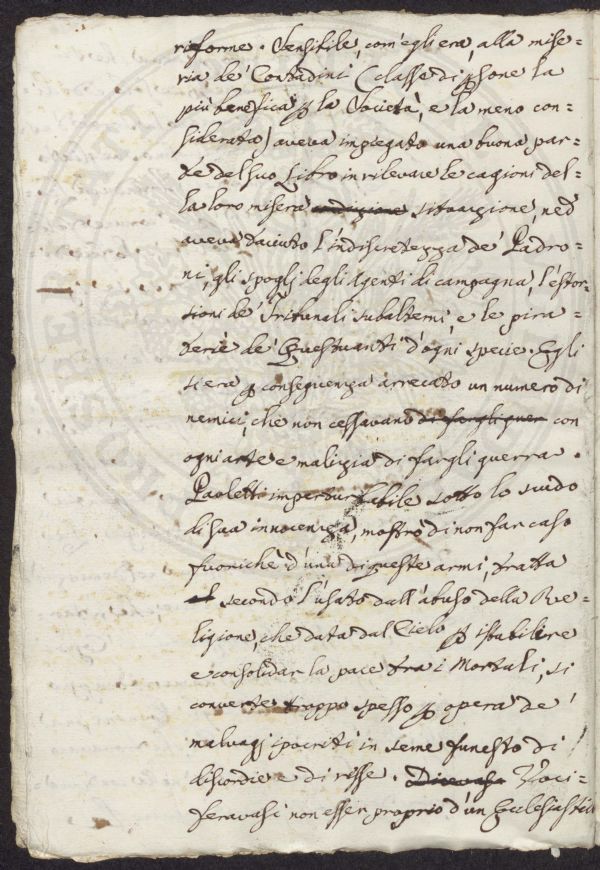 riforme. Sensibile, com'egli era, alla mise=
ria de' Contadini (classe di psone la
più benefica p la Società, e la meno con=
siderata) aveva impiegato una buona par=
te del suo Libro in rilevare le cagioni del=
la loro misera condizione situazione, ned
aveva taciuto l'indiscretezza de' Padro=
ni, gli spoglj degli Agenti di campagna, l'estor=
sioni de' Tribunali subalterni, e le pira=
terie de' Questuanti d'ogni specie. Egli
si era p conseguenza arrecato un numero di
nemici, che non cessavano di fargli guer con
ogni arte e malizia di fargli guerra.
Paoletti imperturbabile sotto lo scudo
di sua innocenza, mostrò di non far caso
fuoriché d'una di queste armi, tratta
secondo l'usato dall'abuso della Re=
ligione, che data dal Cielo p istabilire
e consolidar la pace tra i Mortali, si
converte troppo spesso p opera de'
malvagj ipocriti in seme funesto di
discordie e di risse. Dicevasi Voci=
feravasi non esser proprio d'un Ecclesiastico